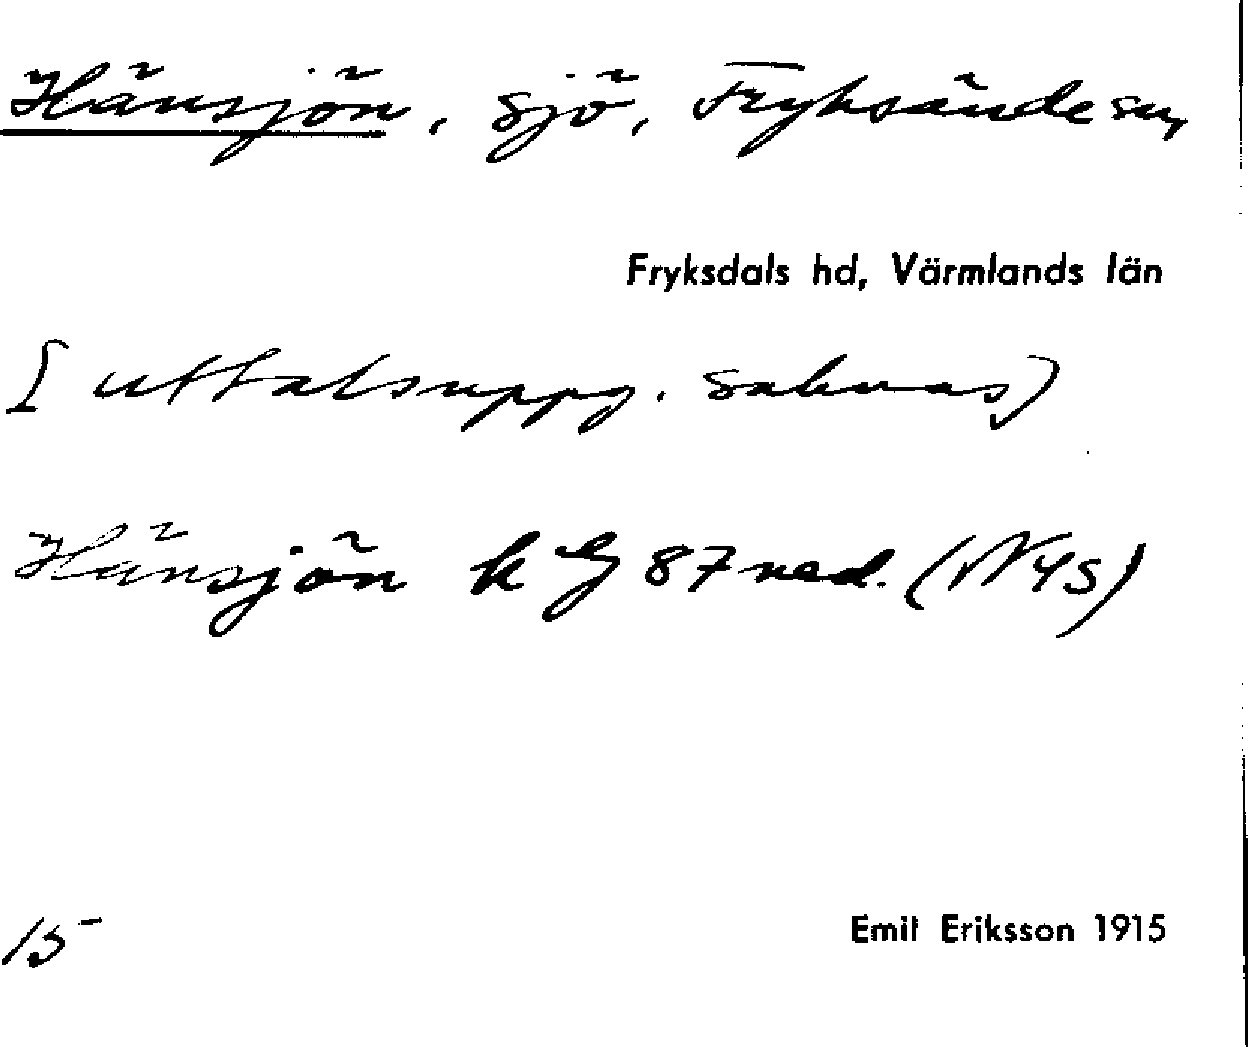 Hänsjön, sjö, Fryksände sn,
Fryksdals hd, Värmlands län
[uttalsuppg. saknas)
Hänsjön k Ej 87 ned. (NYS)
15
Emil Eriksson 1915